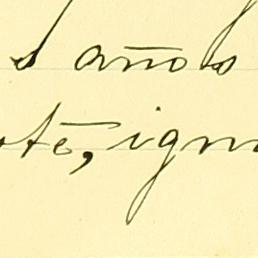 s años
ote, igno